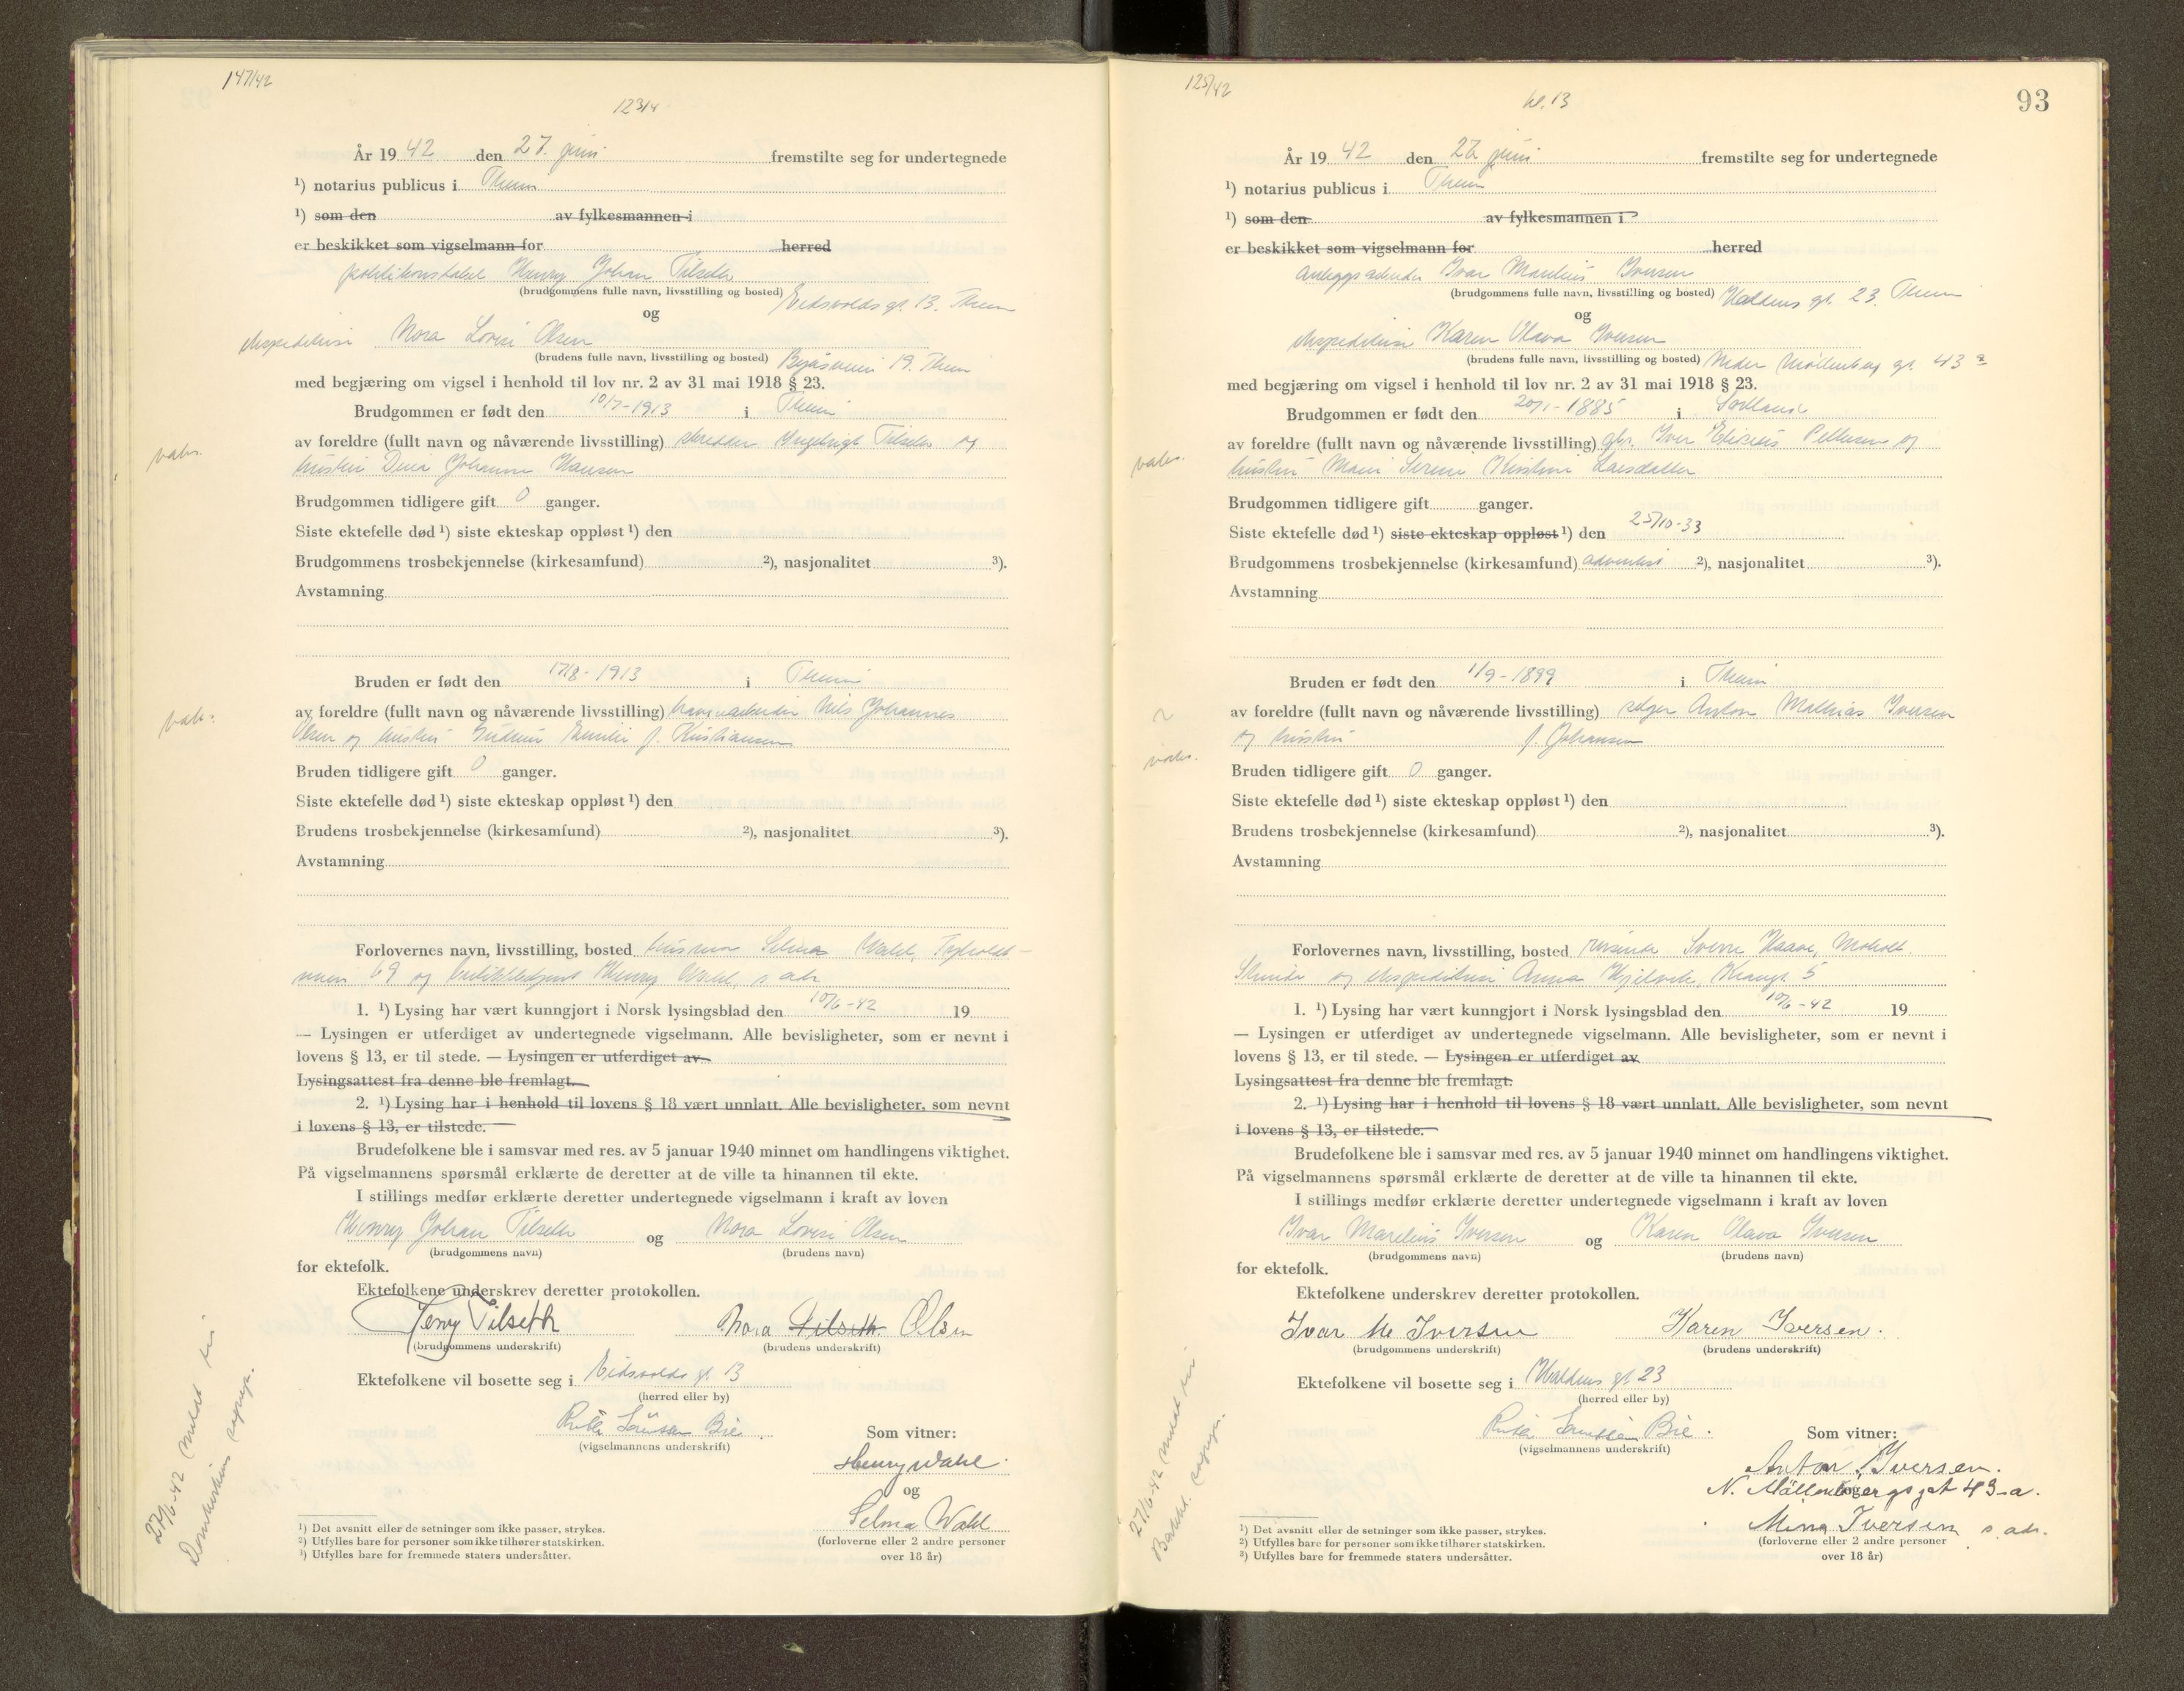 147/42
År 19 42 den 27. juni fremstilte seg for undertegnede
¹) notarius publicus i Thm
¹) som den av fylkesmannen i
er beskikket som vigselmann for herred
politikonstabel Henry Johan Tilseth
(brudgommens fulle navn, livsstilling og bosted) Eidsvolds gt. 13. Thm
og
ekspeditrise Nora Lovise Olsen
(brudens fulle navn, livsstilling og bosted) Byåsveien 19. Thm
med begjæring om vigsel i henhold til lov nr. 2 av 31 mai 1918 § 23.
Brudgommen er født den 10/7-1913 i Thm
av foreldre (fullt navn og nåværende livsstilling) skredder Ingebrigt Tilseth og
vaks.
hustru Dina Johanna Hansen
Brudgommen tidligere gift 0 ganger.
Siste ektefelle død ¹) siste ekteskap oppløst ¹) den
Brudgommens trosbekjennelse (kirkesamfund) ²), nasjonalitet ³).
Avstamning
Bruden er født den 17/8-1913 i Thm
av foreldre (fullt navn og nåværende livsstilling) havnearbeider Nils Johannes
vaks.
Olsen og hustru Gudrun Emilie f. Kristiansen
Bruden tidligere gift 0 ganger.
Siste ektefelle død ¹) siste ekteskap oppløst ¹) den
Brudens trosbekjennelse (kirkesamfund) ²), nasjonalitet ³).
Avstamning
Forlovernes navn, livsstilling, bosted husmor Selma Wahl, Tyholt-
veien 69 og Henry Wahl, s. adr.
1. ¹) Lysing har vært kunngjort i Norsk lysingsblad den 10/6-42 19
— Lysingen er utferdiget av undertegnede vigselmann. Alle bevisligheter, som er nevnt i
lovens § 13, er til stede. — Lysingen er utferdiget av
Lysingsattest fra denne ble fremlagt.
2. ¹) Lysing har i henhold til lovens § 18 vært unnlatt. Alle bevisligheter, som nevnt
i lovens § 13, er tilstede.
Brudefolkene ble i samsvar med res. av 5 januar 1940 minnet om handlingens viktighet.
På vigselmannens spørsmål erklærte de deretter at de ville ta hinannen til ekte.
I stillings medfør erklærte deretter undertegnede vigselmann i kraft av loven
Henry Johan Tilseth og Nora Lovise Olsen
(brudgommens navn) (brudens navn)
for ektefolk.
Ektefolkene underskrev deretter protokollen.
Henry Tilseth Nora Tilseth Olsen
(brudgommens underskrift) (brudens underskrift)
Ektefolkene vil bosette seg i Eidsvolds gt. 13
(herred eller by)
Bie
(vigselmannens underskrift)
Som vitner:
Henry Wahl.
og
Selma Wahl
(forloverne eller 2 andre personer
over 18 år)
27/6-42 meldt til
Domkirkens sogn.
¹) Det avsnitt eller de setninger som ikke passer, strykes.
²) Utfylles bare for personer som ikke tilhører statskirken.
³) Utfylles bare for fremmede staters undersåtter.
125/42
kl. 13
93
År 19 42 den 27. juni fremstilte seg for undertegnede
¹) notarius publicus i Thm
¹) som den av fylkesmannen i
er beskikket som vigselmann for herred
anleggsarbeider Ivar Marelius Iversen
(brudgommens fulle navn, livsstilling og bosted) Haldens gt. 23. Thm
og
ekspeditrise Karen Olava Iversen
(brudens fulle navn, livsstilling og bosted) Neder Møllenberg gt. 43 a
med begjæring om vigsel i henhold til lov nr. 2 av 31 mai 1918 § 23.
Brudgommen er født den 20/1-1885 i Sortland
av foreldre (fullt navn og nåværende livsstilling) gbr. Iver Pettersen og
vaks.
hustru Kristine Larsdatter
Brudgommen tidligere gift ganger.
Siste ektefelle død ¹) siste ekteskap oppløst ¹) den 25/10-33
Brudgommens trosbekjennelse (kirkesamfund) adventist ²), nasjonalitet ³).
Avstamning
Bruden er født den 1/9-1899 i Thm
av foreldre (fullt navn og nåværende livsstilling) Anton Mathias Iversen
og hustru f. Johansen
vaks.
Bruden tidligere gift 0 ganger.
Siste ektefelle død ¹) siste ekteskap oppløst ¹) den
Brudens trosbekjennelse (kirkesamfund) ²), nasjonalitet ³).
Avstamning
Forlovernes navn, livsstilling, bosted Sverre
og ekspeditrise Anna 5
1. ¹) Lysing har vært kunngjort i Norsk lysingsblad den 10/6-42 19
— Lysingen er utferdiget av undertegnede vigselmann. Alle bevisligheter, som er nevnt i
lovens § 13, er til stede. — Lysingen er utferdiget av
Lysingsattest fra denne ble fremlagt.
2. ¹) Lysing har i henhold til lovens § 18 vært unnlatt. Alle bevisligheter, som nevnt
i lovens § 13, er tilstede.
Brudefolkene ble i samsvar med res. av 5 januar 1940 minnet om handlingens viktighet.
På vigselmannens spørsmål erklærte de deretter at de ville ta hinannen til ekte.
I stillings medfør erklærte deretter undertegnede vigselmann i kraft av loven
Ivar Marelius Iversen og Karen Olava Iversen
(brudgommens navn) (brudens navn)
for ektefolk.
Ektefolkene underskrev deretter protokollen.
Ivar M Iversen Karen Iversen.
(brudgommens underskrift) (brudens underskrift)
Ektefolkene vil bosette seg i Haldens gt. 23
(herred eller by)
Bie.
(vigselmannens underskrift)
Som vitner:
Anton Iversen.
N. Møllenbergsgat 43-a.
og
Mina Iversen s. adr.
(forloverne eller 2 andre personer
over 18 år)
27/6-42 meldt til
Bakkl. sogn.
¹) Det avsnitt eller de setninger som ikke passer, strykes.
²) Utfylles bare for personer som ikke tilhører statskirken.
³) Utfylles bare for fremmede staters undersåtter.